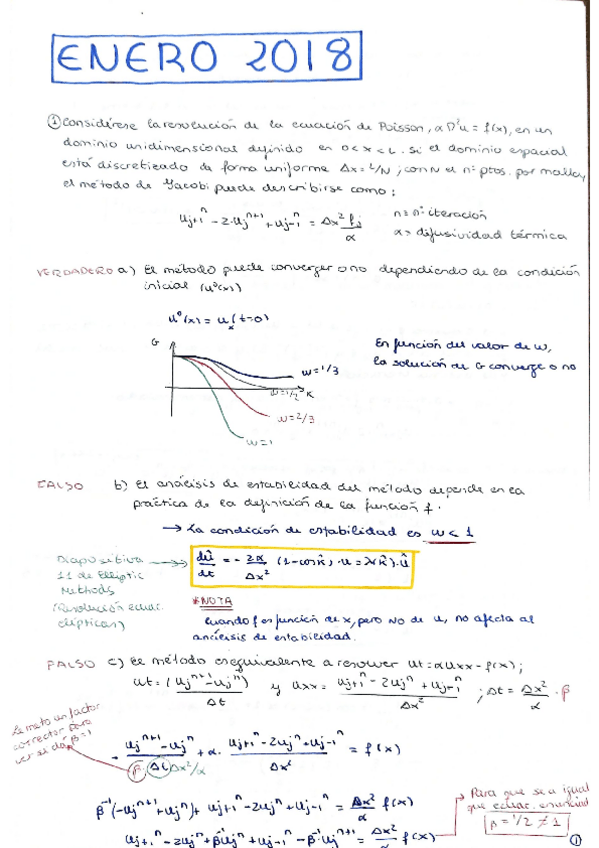 ENERO 2018
① Considérese la resolución de la ecuación de Poisson, α∇²u = f(x), en un
dominio unidimensional definido en 0<x<L. Si el dominio espacial
está discretizado de forma uniforme Δx = L/N; con N el nº ptos. por malla,
el método de Jacobi puede describirse como:
uj+1^n - 2·uj^n+1 + uj-1^n = Δx² fj/α
n = nº iteración
α = difusividad térmica
VERDADERO a) El método puede converger o no dependiendo de la condición
inicial (u⁰(x))
u⁰(x) = u(t=0)
x
G
En función del valor de w,
la solución de G converge o no
w=1/3
w=1/2
K
w=2/3
w=1
FALSO b) El análisis de estabilidad del método depende en la
práctica de la definición de la función f.
→ La condición de estabilidad es w < 1
Diapositiva
11 de Elliptic
Methods
(Resolución ecuac.
elípticas)
dû/dt = - 2α/Δx² (1-cos k̂)·u = λ(k̂)·û
*NOTA
Cuando f es función de x, pero NO de u, no afecta al
análisis de estabilidad.
FALSO c) El método es equivalente a resolver ut = αuxx - f(x);
ut = (uj^n+1 - uj^n)/Δt y uxx = (uj+1^n - 2uj^n + uj-1^n)/Δx² ; Δt = Δx²/α · β
Le meto un factor
corrector para
ver si da β=1
- (uj^n+1 - uj^n)/(β·Δt Δx²/α) + α · (uj+1^n - 2uj^n + uj-1^n)/Δx² = f(x)
β⁻¹(-uj^n+1 + uj^n) + uj+1^n - 2uj^n + uj-1^n = Δx²/α f(x)
Para que sea igual
que ecuac. enunciado
β = 1/2 ≠ 1
uj+1^n - 2uj^n + β⁻¹uj^n + uj-1^n - β⁻¹uj^n+1 = Δx²/α f(x)
①